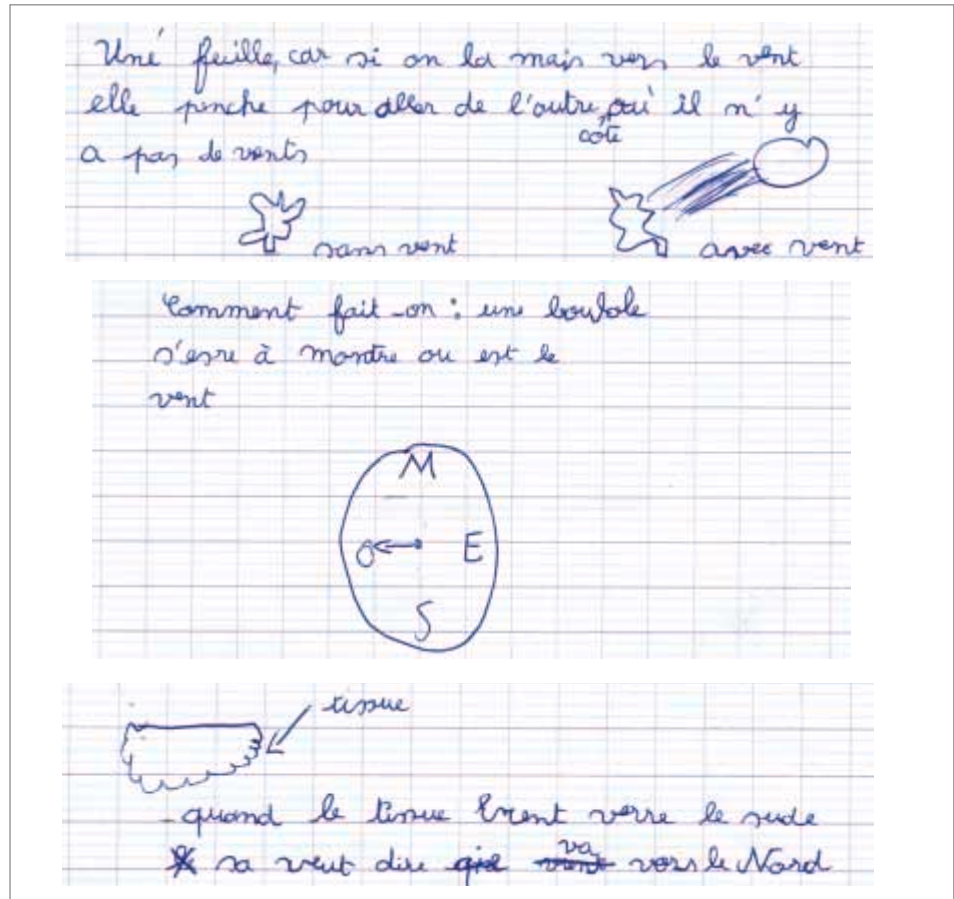 Une feuille, car si on la main vers le vent
elle penche pour aller de l'autre côté, où il n'y
a pas de vents
sans vent
avec vent
Comment fait-on : une boussole
s'esre à montre ou est le
vent
M
O E
S
tissue
- quand le tissue vers le sude
sa veut dire va vers le Nord